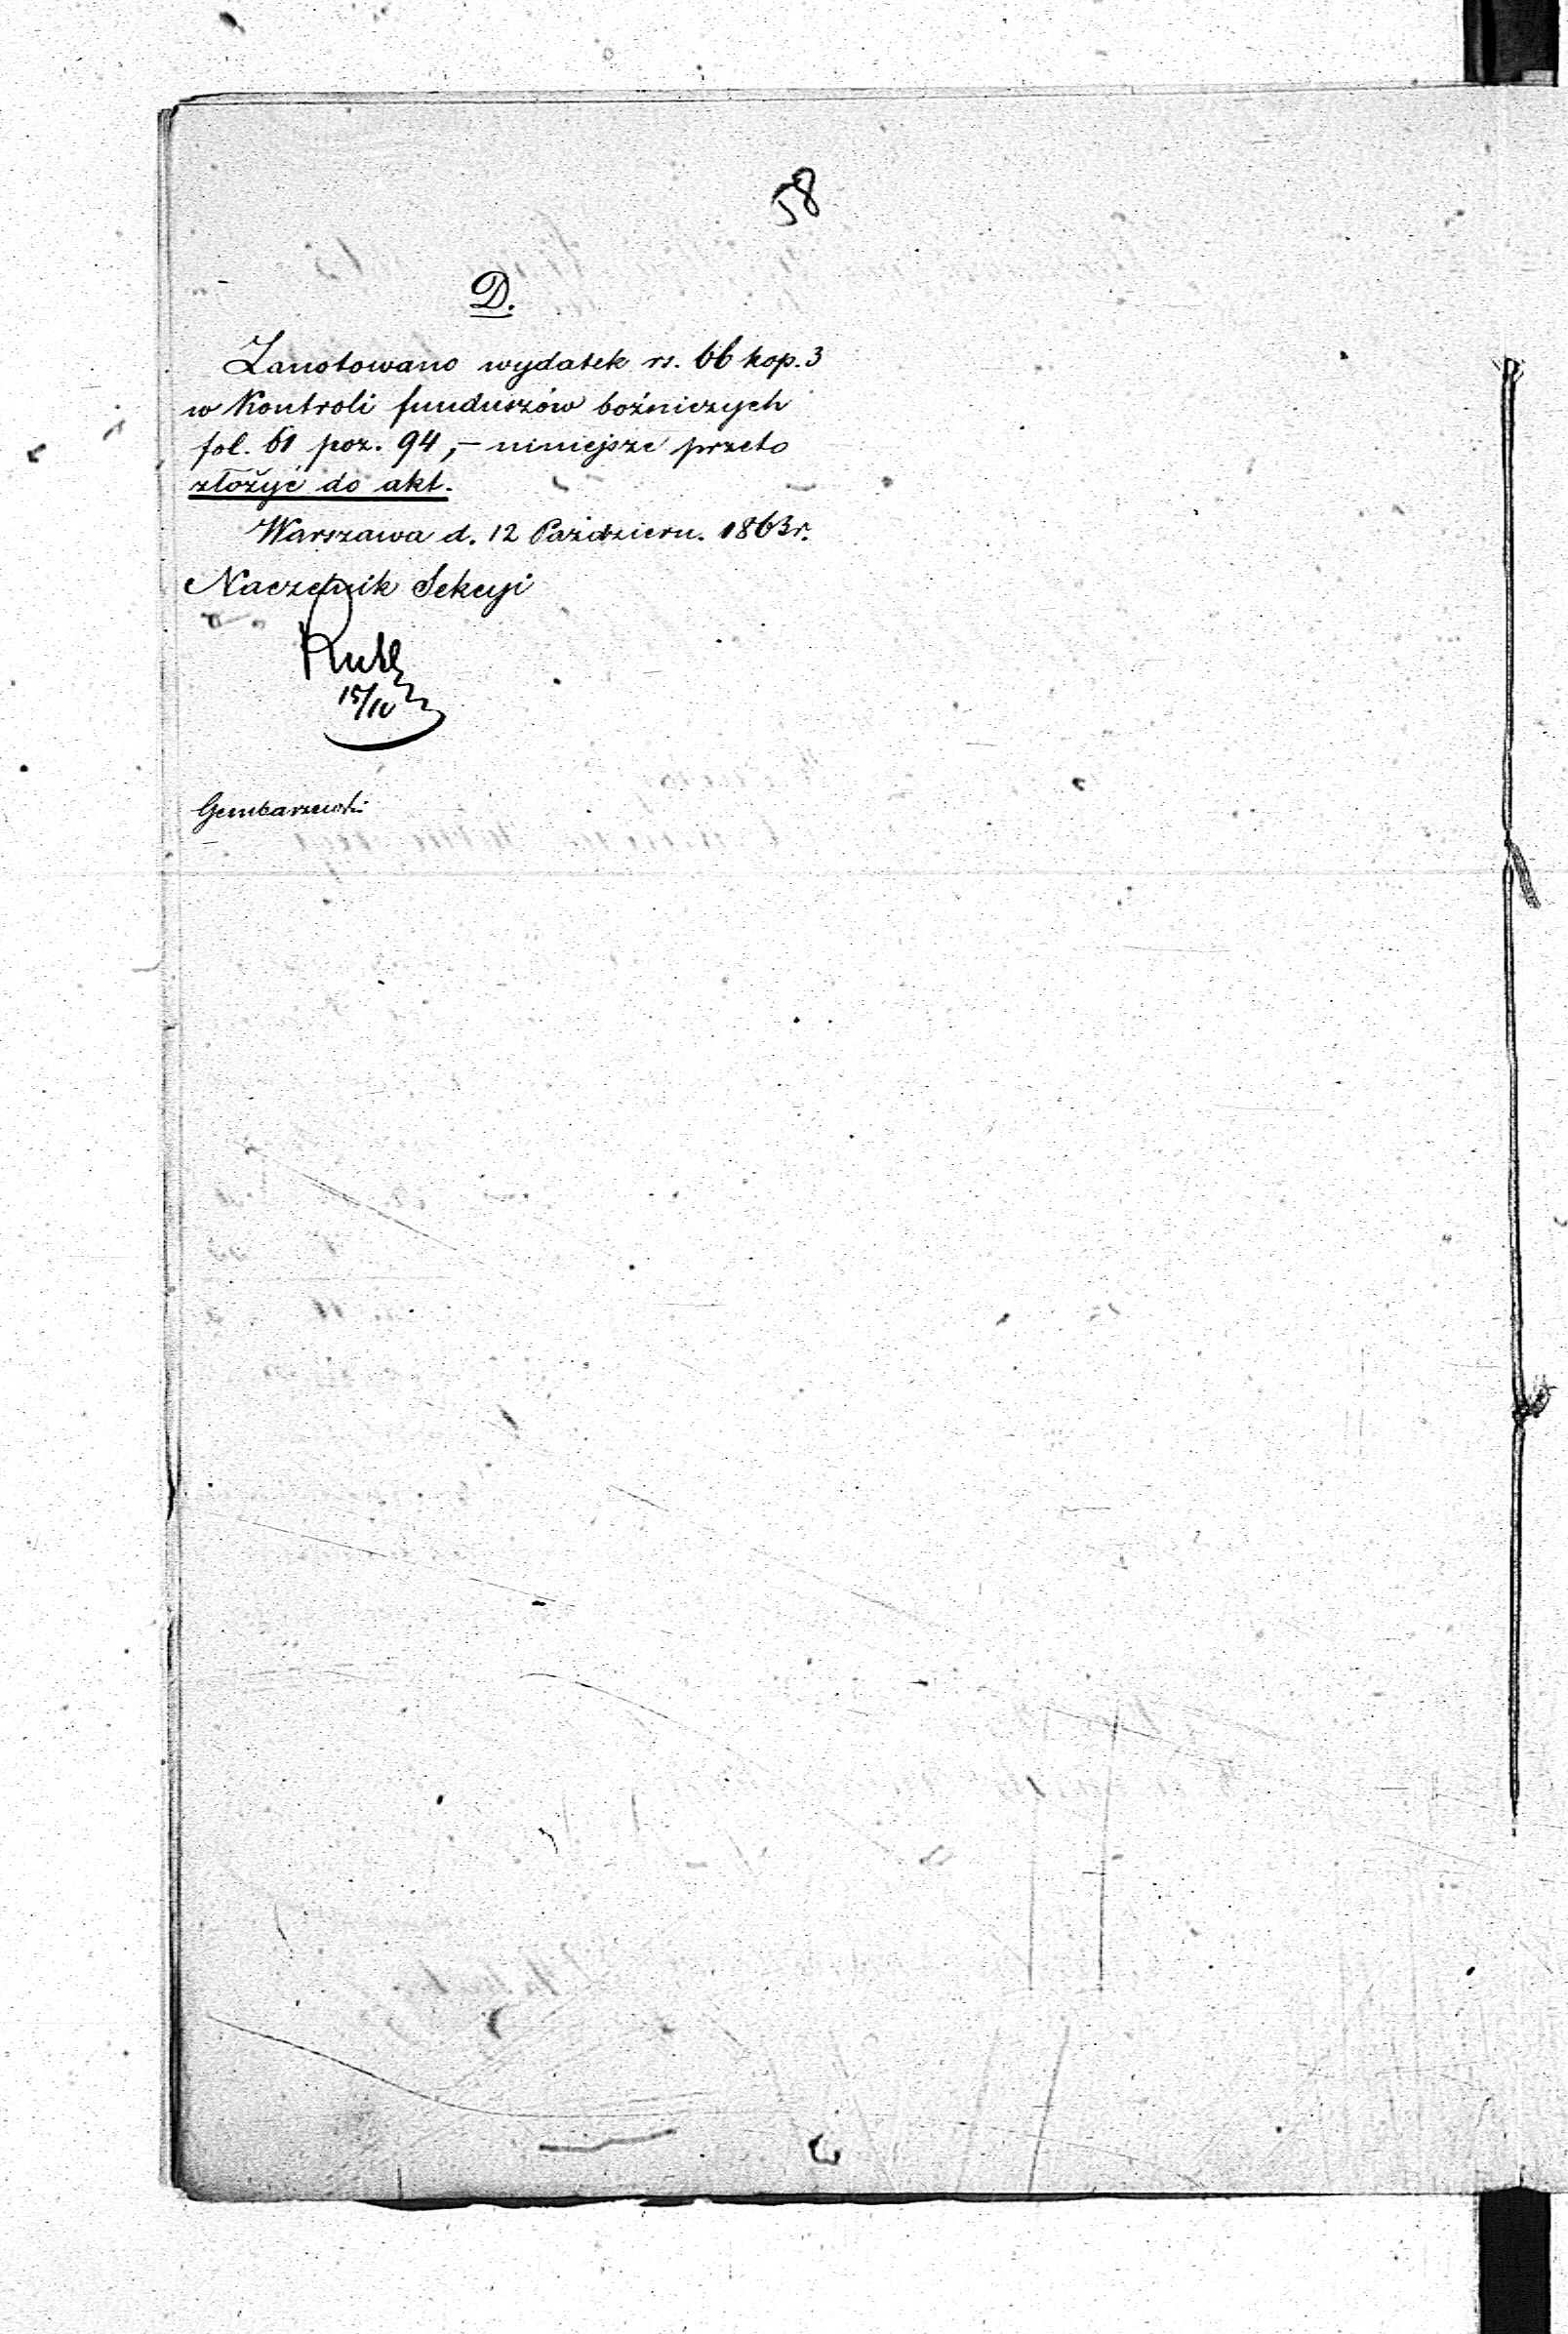 58
D.
Zanotowano wydatek rs. 66 kop. 3
w Kontroli funduszów bożniczych
fol. 61 poz. 94, – niniejsze przeto
złożyć do akt.
Warszawa d. 12 Październ. 1863 r.
Naczelnik Sekcyi
15/10
Gembarzewski